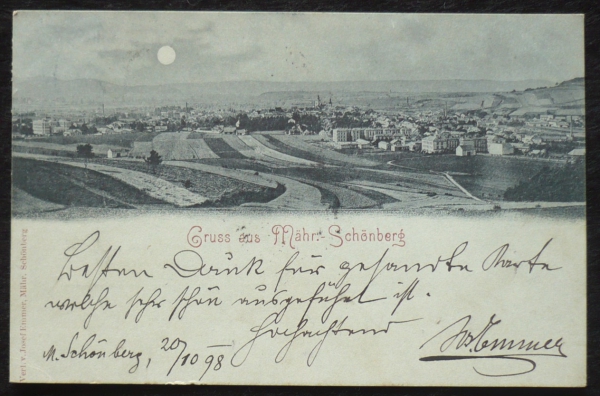 Gruss aus Mähr.-Schönberg
Besten Dank für gesandte Karte
welche sehr schön ausgeführt ist.
Hochachtend Jos. Emmer
M. Schönberg, 20/10 98
Verl. v. Josef Emmer, Mähr. Schönberg